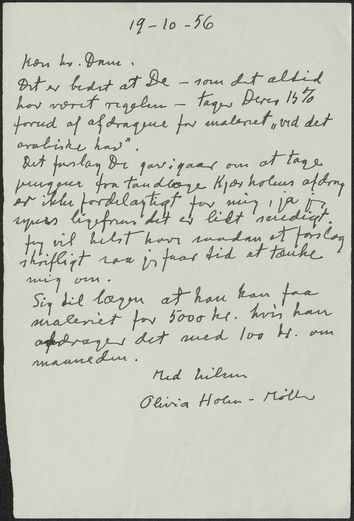 19-10-56
Kære hr. Dam.
Det er bedst at De – som det altid
har været regelen – tager Deres 15%
forud af afdragene for maleriet „ved det
arabiske hav".
Det forslag De gav igaar om at tage
pengene fra tandlæge Kjærholms afdrag
er ikke fordelagtigt for mig, ja
synes ligefrem det er lidt snedigt.
Jeg vil helst have saadan et forslag
skriftligt saa jeg faar tid at tænke
mig om.
Sig til lægen at han kan faa
maleriet for 5000 kr. hvis han
afdrager det med 100 kr. om
maaneden.
Med hilsen
Olivia Holm-Møller